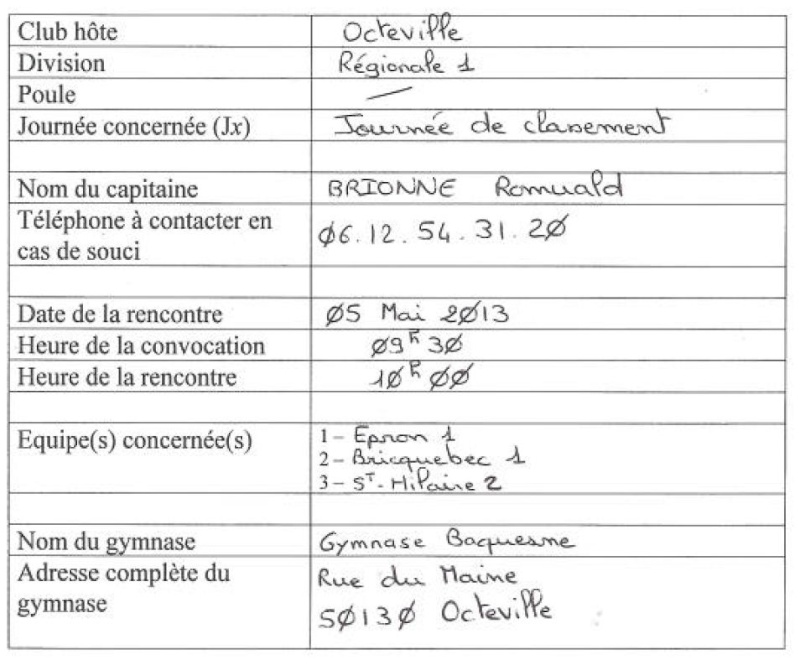 Club hôte Octeville
Division Régionale 1
Poule —
Journée concernée (Jx) Journée de classement
Nom du capitaine BRIONNE Romuald
Téléphone à contacter en
cas de souci 06.12.54.31.20
Date de la rencontre 05 Mai 2013
Heure de la convocation 09h30
Heure de la rencontre 10h00
Equipe(s) concernée(s) 1- Epron 1
2- Bricquebec 1
3- St-Hilaire 2
Nom du gymnase Gymnase Baquesne
Adresse complète du
gymnase Rue du Maine
50130 Octeville